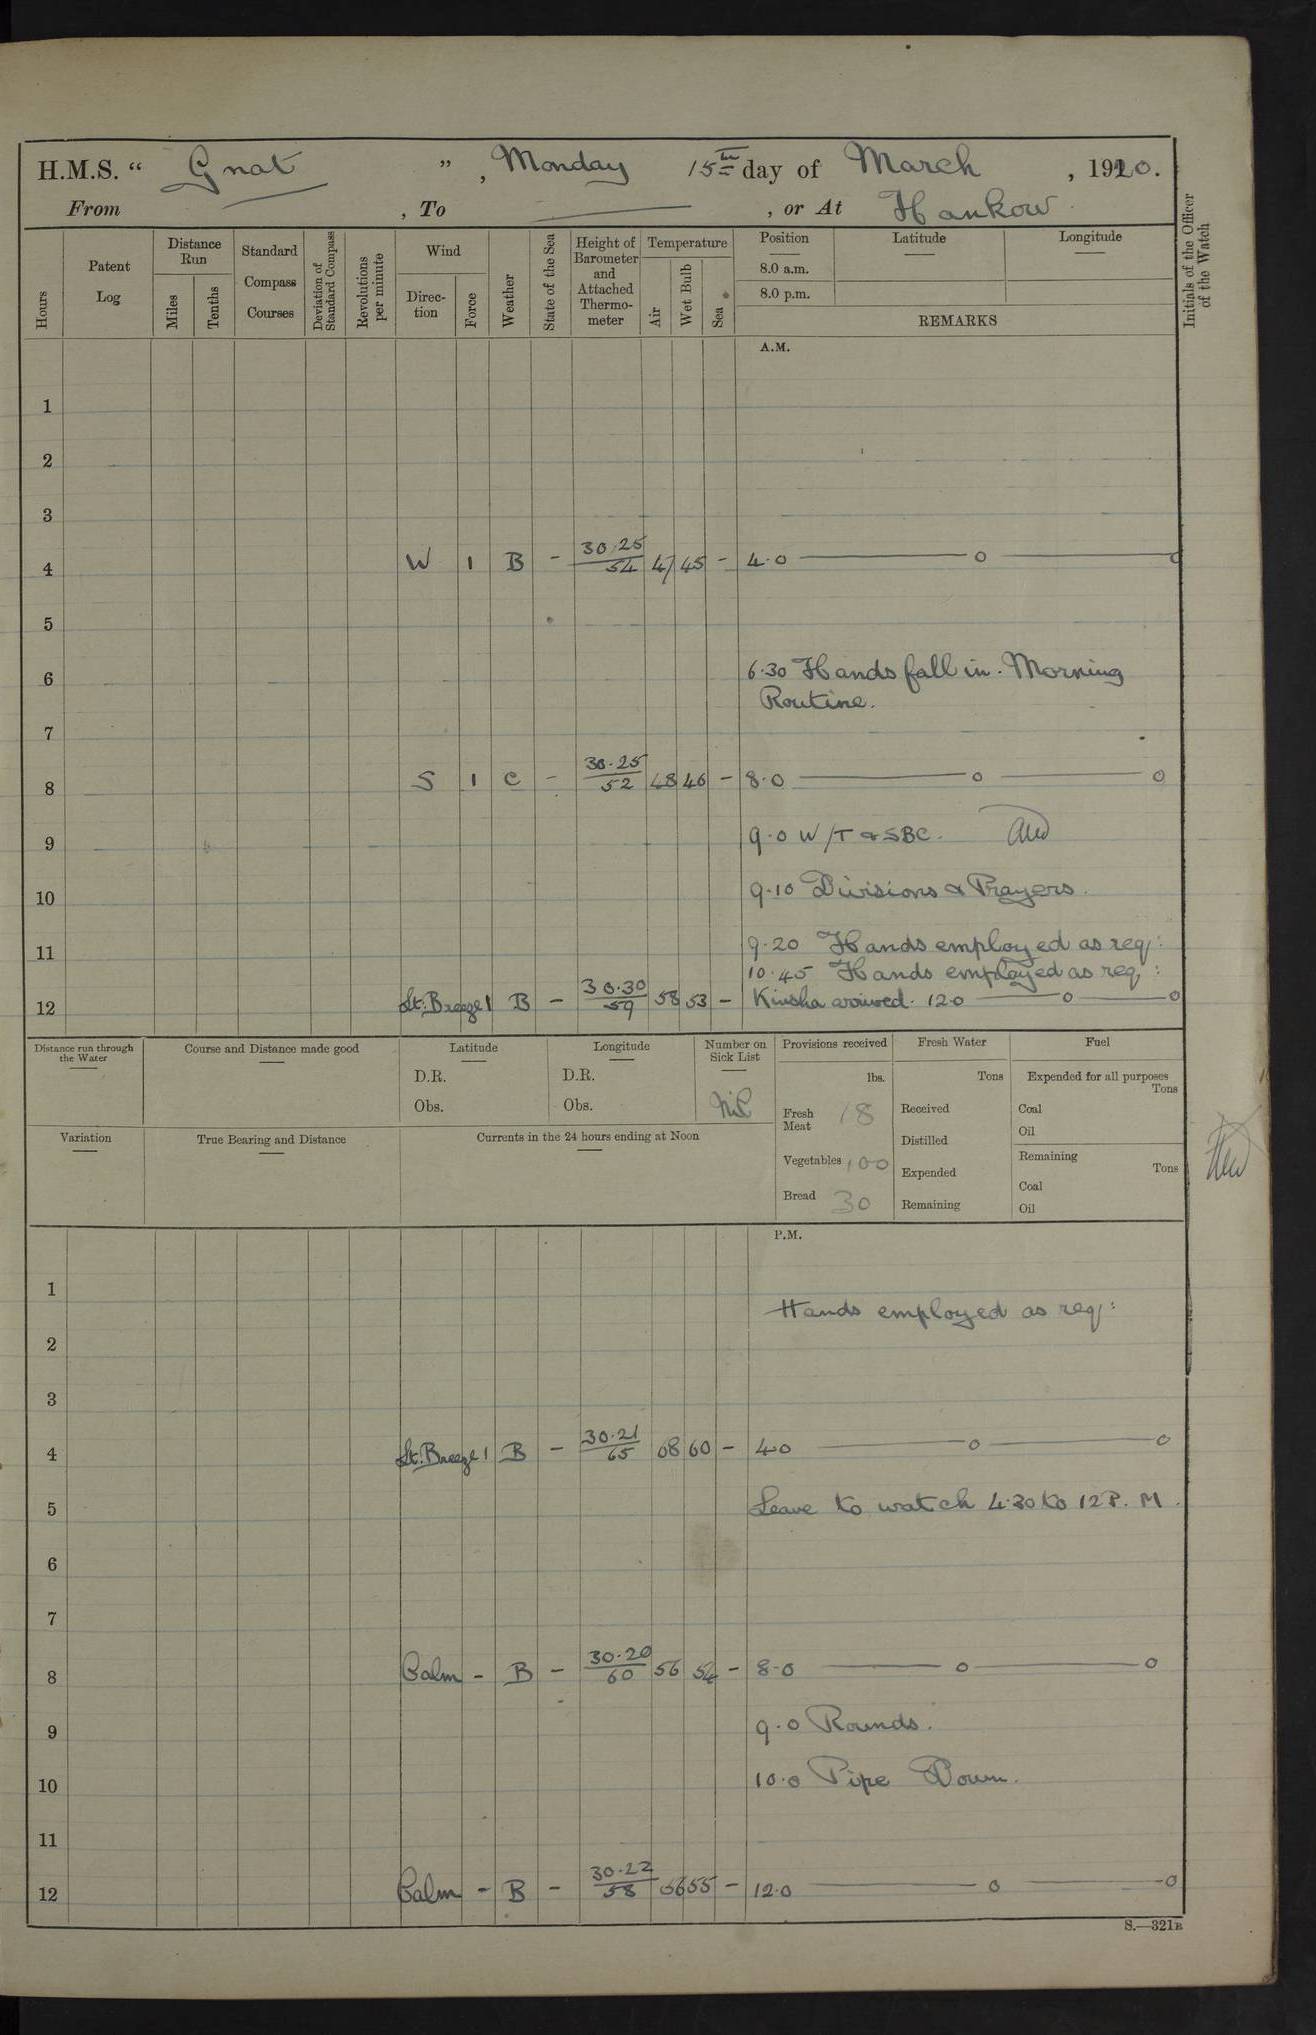 H.M.S. “ Gnat ”, Monday 15th day of March , 1920.
From , To , or At Hankow
Hours
Patent Log
Distance Run
Miles
Tenths
Standard Compass Courses
Deviation of Standard Compass
Revolutions per minute
Wind
Direc-tion
Force
Weather
State of the Sea
Height of Barometer and Attached Thermo-meter
Temperature
Air
Wet Bulb
Sea
Position
8.0 a.m.
8.0 p.m.
Latitude
Longitude
REMARKS
Initials of the Officer of the Watch
A.M.
1
2
3
4 W 1 B - 30.25/54 47 45 - 4.0 — o — o
5
6 6.30 Hands fall in. Morning
Routine.
7
8 S 1 C - 30.25/52 48 46 - 8.0 — o — o
9 9.0 W/T & SBC.
10 9.10 Divisions & Prayers.
11 9.20 Hands employed as req:
10.45 Hands employed as req:
12 Lt. Breeze 1 B - 30.30/59 58 53 - Kinsha arrived. 12.0 — o — o
Distance run through the Water
Course and Distance made good
Latitude
D.R.
Obs.
Longitude
D.R.
Obs.
Number on Sick List
Nil
Provisions received
lbs.
Fresh Meat 18
Vegetables 100
Bread 30
Fresh Water
Tons
Received
Distilled
Expended
Remaining
Fuel
Expended for all purposes
Tons
Coal
Oil
Remaining
Tons
Coal
Oil
Variation
True Bearing and Distance
Currents in the 24 hours ending at Noon
P.M.
1
Hands employed as req:
2
3
4 Lt. Breeze 1 B - 30.21/65 68 60 - 4.0 — o — o
5 Leave to watch 4.30 to 12 P.M.
6
7
8 Calm - B - 30.20/60 56 54 - 8.0 — o — o
9 9.0 Rounds.
10 10.0 Pipe Down.
11
12 Calm - B - 30.22/58 56 55 - 12.0 — o — o
S.—321B